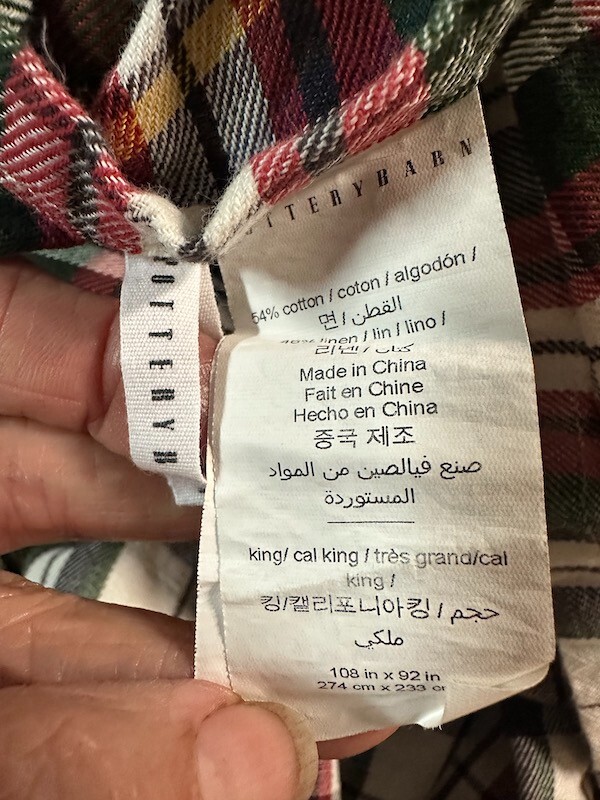 POTTERY B
TTERYBARN
54% cotton / coton / algodón /
면 / القطن /
46% linen / lin / lino /
리넨 / كتان /
Made in China
Fait en Chine
Hecho en China
중국 제조
صنع فيالصين من المواد
المستوردة
king/ cal king / très grand/cal
king /
킹/캘리포니아킹 / حجم
ملكي
108 in x 92 in
274 cm x 233 cm